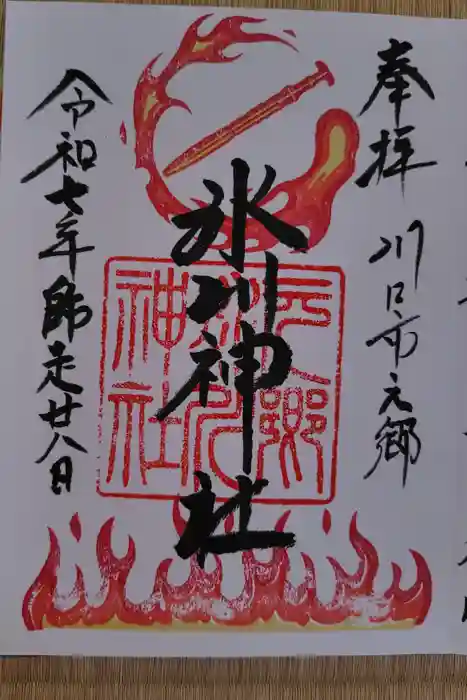 奉拝
川口市元郷
氷川神社
元郷
氷川
神社
令和七年師走廿八日